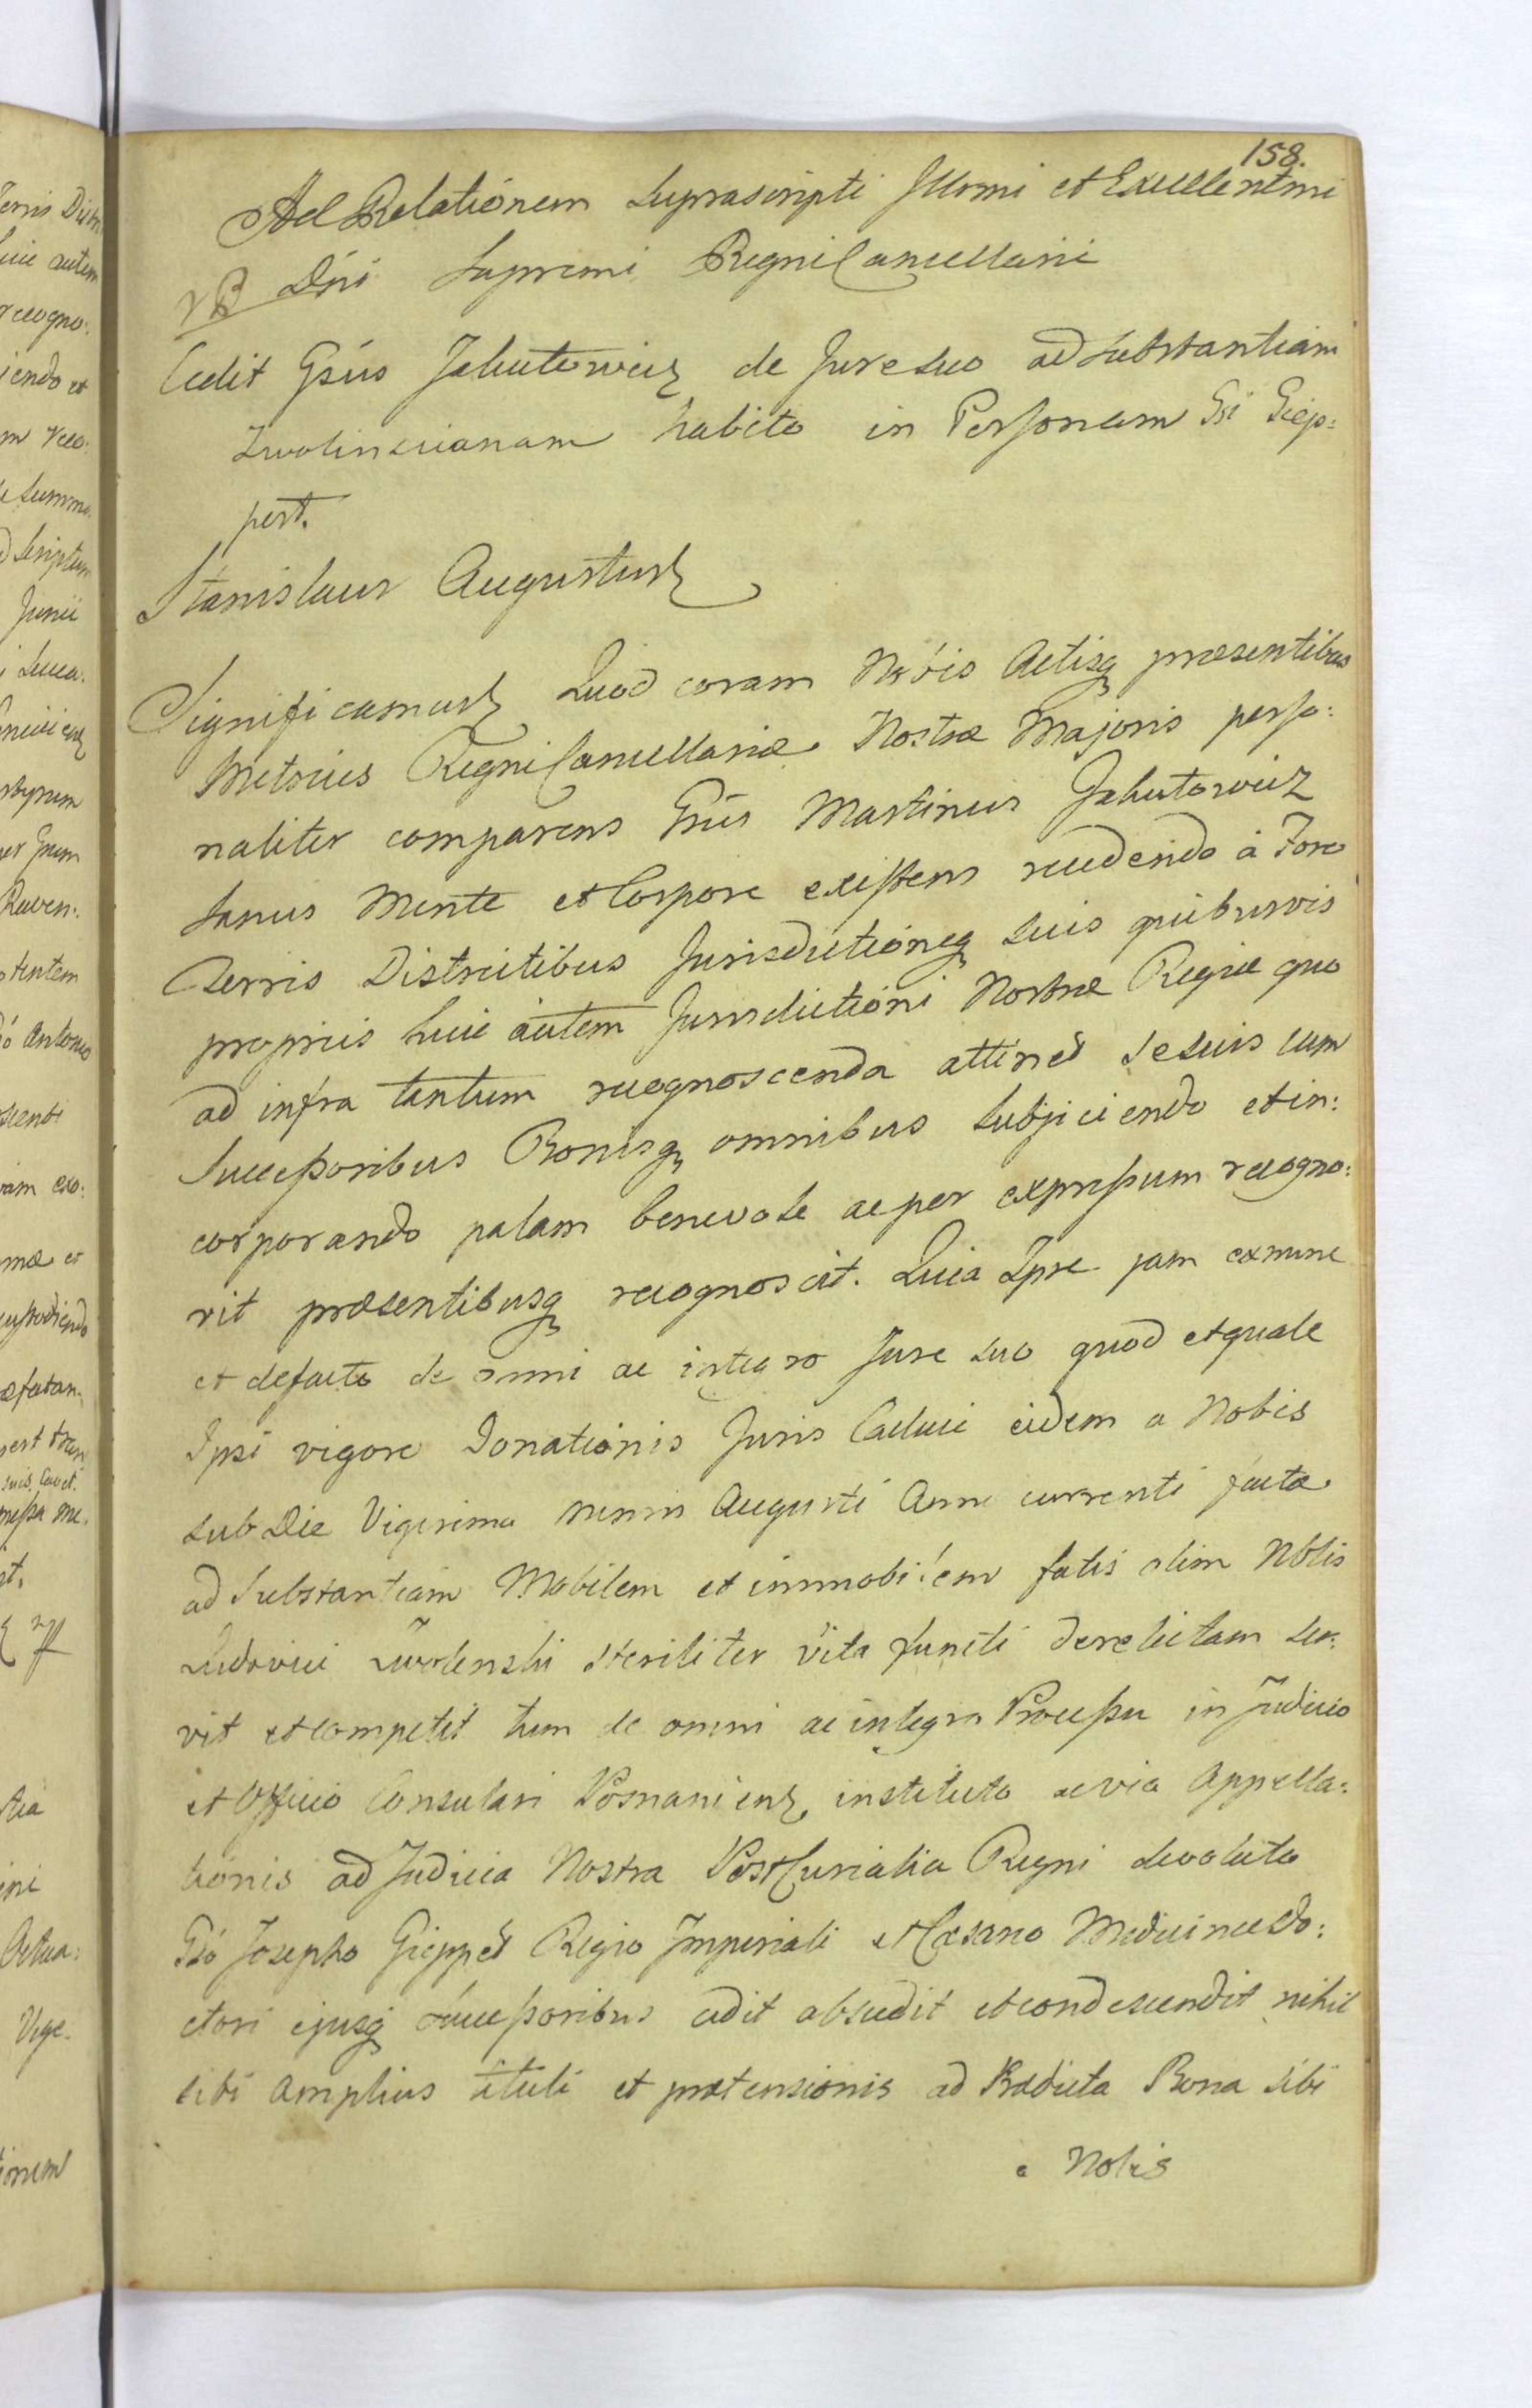 158.
Ad Relationem Suprascripti Illmi et Excellentmi
Dni Supremi Regni Cancellarii
Cedit Gsus Jakutowicz de Jure suo ad Substantiam
Zwolinscianam habito in Personam Gsi Giep:
pert.
Stanislaus Augustus
Significamus Quod coram Nobis Actisq praesentibus
Metrices Regni Cancellariae Nostrae Majoris perso:
naliter comparens Gsus Martinus Jakutowicz
Sanus Mente et Corpore existens recedendo à Foro
Terris Districtibus Jurisdictioneq suis quibusvis
propriis huic autem Jurisdictioni Nostrae Regiae quo
ad infra tantum recognoscenda attinet se suis cum
Successoribus Bonisq omnibus Subjiciendo et in:
corporando palam benevole ac per expressum recogno:
vit praesentibusq recognoscit. Quia Ipse jam ex nunc
et defacto de omni ac integro Jure suo quod et quale
Ipsi vigore Donationis Juris Caduci eidem a Nobis
sub Die Vigesima mensis Augusti Anni currenti factae
ad Substantiam Mobilem et immobilem fatis olim Nblis
Ludovici Zwolenski steriliter vita functi derelictam ser:
vit et competit tum de omni ac integro Processu in Judicio
et Officio Consulari Posnaniens instituto ac via Appella:
tionis ad Judicia Nostra PostCurialia Regni devoluto
Gso Josepho Gieppert Regio Imperiali et Caesareo Medicinae Do:
ctori ejusq Successoribus cedit abscedit et condescendit nihil
sibi amplius tituli et praetensionis ad Praedicta Bona sibi
a Nobis